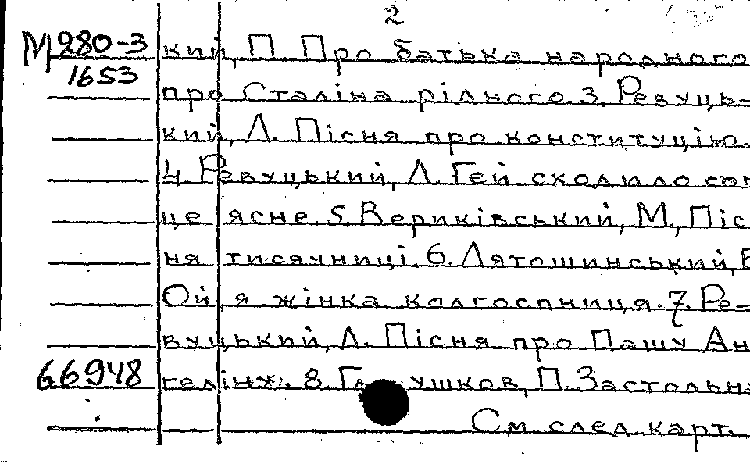 2
М280-3 кий, П. Про батька народного
1653
про Сталіна рідного. 3. Ревуць-
кий, Л. Пісня про конституцію.
4. Ревуцький, Л. Гей сходило сон
це ясне. 5. Вериківський, М. Піс
ня тисячниці. 6. Лятошинський, Б
Ой я жінка колгоспниця. 7. Ре-
вуцький, Л. Пісня про Пашу Ан
66948 геліну. 8. П. Застольн
См. след. карт.